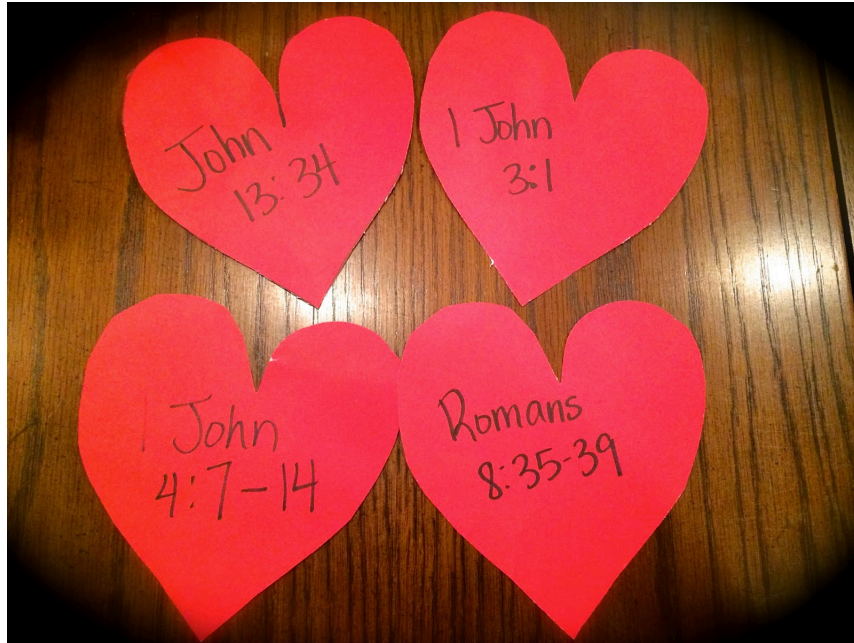 John
13:34
1 John
3:1
1 John
4:7-14
Romans
8:35-39